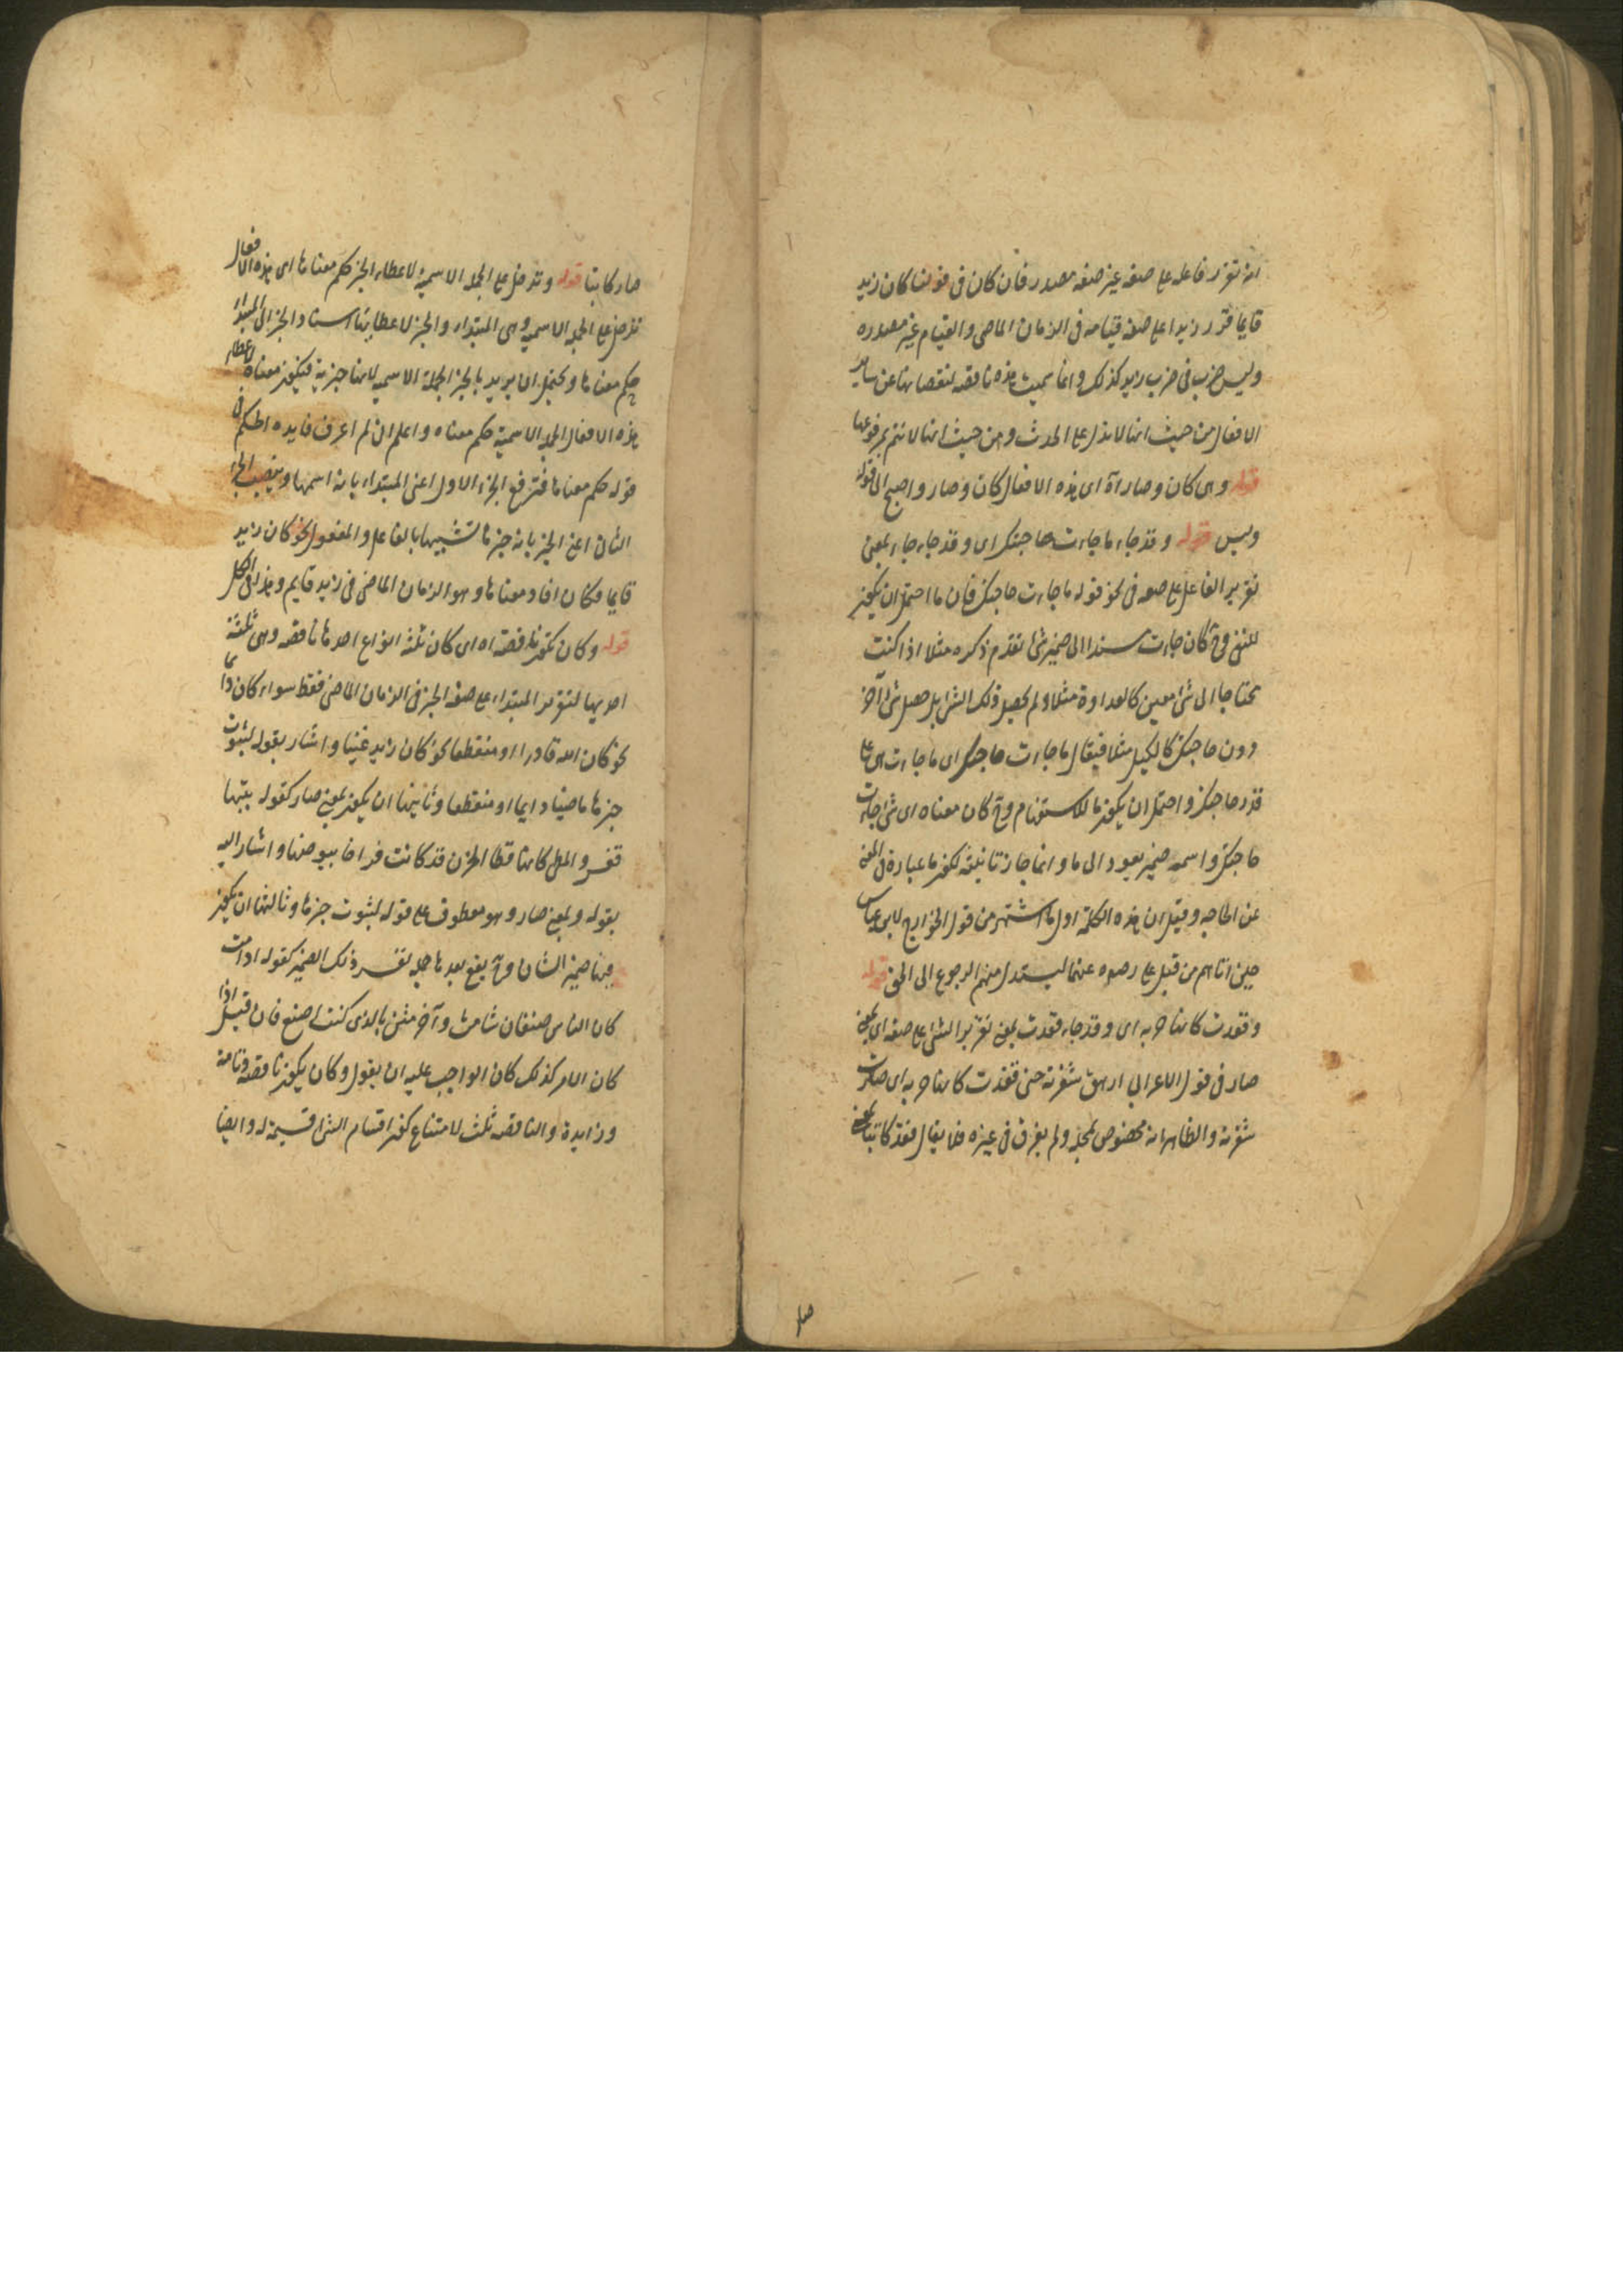 انه تقرر فاعله على صفة غير صفة مصدره فان كان فى قولنا كان زيد
قايما قرر زيدا على صفة قيامه فى الزمان الماضى والقيام غير مصدره
وليس ضرب فى ضرب زيد كذلك وانما سميت هذه ناقصة لنقصانها عن ساير
الافعال من حيث انها لا تدل على الحدث ومن حيث انها لا تتم بمرفوعها
قوله وهى كان وصار اه اى هذه الافعال كان وصار واصبح الى قوله
وليس قوله وقد جاء ما جاءت حاجتك اى وقد جاء جاء بمعنى
تقرير الفاعل على صفة فى نحو قوله ما جاءت حاجتك فان ما احتمل ان يكون
للنفى وح كان جاءت مسندا الى ضمير شئ تقدم ذكره مثلا اذا كنت
محتاجا الى شئ معين كالعداوة مثلا ولم يحصل ذلك الشئ بل حصل شئ آخر
دون حاجتك كالكيل مثلا فيقال ما جاءت حاجتك اى ما جاءت هى على
قدر حاجتك واحتمل ان يكون ما للاستفهام وح كان معناه اى شئ جاءت
حاجتك واسمه ضمير يعود الى ما وانما جاز تانيثه لكون ما عبارة فى المعنى
عن الحاجه وقيل ان هذه الكلمة اول ما اشتهر من قول الخوارج لابن عباس
حين اتاهم من قبل على رضى الله عنهما ليستدل منهم الرجوع الى الحق قوله
وقعدت كانها حربه اى وقد جاء قعدت بمعنى تقرير الشئ على صفة اى بمعنى
صار فى قول الاعرابى ارهف شفرته حتى قعدت كانها حربه اى صارت
شفرته والظاهر انه مخصوص بمحله ولم يعرف فى غيره فلا يقال قعد كاتبا بمعنى
صار
صار كاتبا قوله وتدخل على الجملة الاسمية لاعطاء الخبر حكم معناها اى هذه الافعال
تدخل على الجملة الاسمية وهى المبتداء والخبر لاعطايها اسناد الخبر الى المبتداء
حكم معناها ويحتمل ان يريد بالخبر الجملة الاسمية لانها خبرية فيكون معناه لاعطاء
هذه الافعال الجملة الاسمية حكم معناه واعلم ان لم اعرف فايدة الحكم فى
قوله حكم معناها فترفع الجزء الاول اعنى المبتداء بانه اسمها وينصب الجزء
الثانى اعنى الخبر بانه خبرها تشبيها بالفاعل والمفعول نحو كان زيد
قايما فكان افاد معناها وهو الزمان الماضى فى زيد قايم وهذا فى الكل
قوله وكان تكون ناقصة اه اى كان ثلثة انواع احدها ناقصة وهى ثلثة
احديها لتقرير المبتداء على صفة الخبر فى الزمان الماضى فقط سواء كان دايما
نحو كان الله قادرا او منقطعا نحو كان زيد غنيا واشار بقوله لثبوت
خبرها ماضيا دايما او منقطعا وثانيتها ان يكون بمعنى صار كقوله بتيها
قفر والمطى كانها قطا الحزن قد كانت فراخا بيوضها واشار اليه
بقوله وبمعنى صار وهو معطوف على قوله لثبوت خبرها وثالثها ان يكون
فيها ضمير الشان وح يقع بعدها جملة تفسر ذلك الضمير كقوله اذا مت
كان الناس صنفان شامت وآخر مثن بالذى كنت اصنع فان قيل اذا
كان الامر كذلك كان الواجب عليه ان يقول وكان يكون ناقصة وتامة
وزايدة والناقصة ثلث لامتناع كون اقسام الشئ قسيمة له وايضا